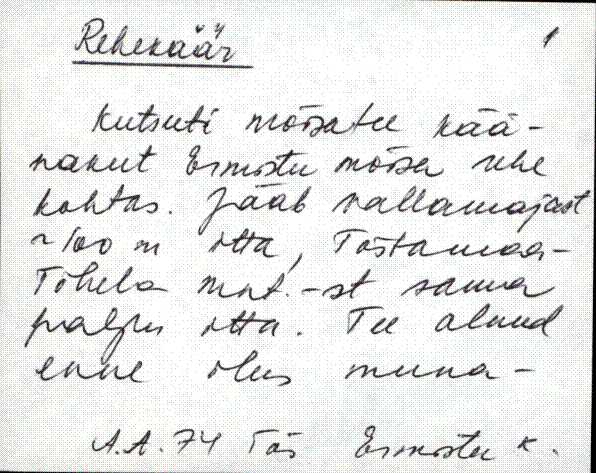 Rehekäär 1
Kutsuti mõisatee kää-
nakut Ermistu mõisa rehe
kohtas. Jääb vallamajast
~100 m itta, Tõstamaa-
Tõhela mnt.-st sama
palju itta. Tee olnud
enne ilus muna-
A.A. 74 Tõs Ermistu k.